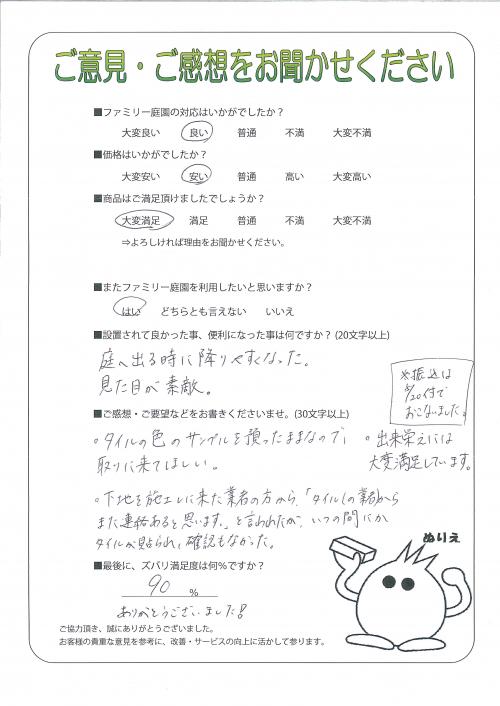 ご意見・ご感想をお聞かせください
■ファミリー庭園の対応はいかがでしたか？
大変良い　良い　普通　不満　大変不満
■価格はいかがでしたか？
大変安い　安い　普通　高い　大変高い
■商品はご満足頂けましたでしょうか？
大変満足　満足　普通　不満　大変不満
⇒よろしければ理由をお聞かせください。
■またファミリー庭園を利用したいと思いますか？
はい　どちらとも言えない　いいえ
■設置されて良かった事、便利になった事は何ですか？(20文字以上)
庭へ出る時に降りやすくなった。
見た目が素敵。
※振込は
5/20付で
おこないました。
■ご感想・ご要望などをお書きくださいませ。(30文字以上)
・タイルの色のサンプルを預ったままなので
取りに来てほしい。
・出来栄えには
大変満足しています。
・下地を施工しに来た業者の方から、「タイルの業者から
また連絡あると思います。」と言われたが、いつの間にか
タイルが貼られ、確認もなかった。
■最後に、ズバリ満足度は何％ですか？
90 ％
ありがとうございました！
ぬりえ
ご協力頂き、誠にありがとうございました。
お客様の貴重な意見を参考に、改善・サービスの向上に活かして参ります。